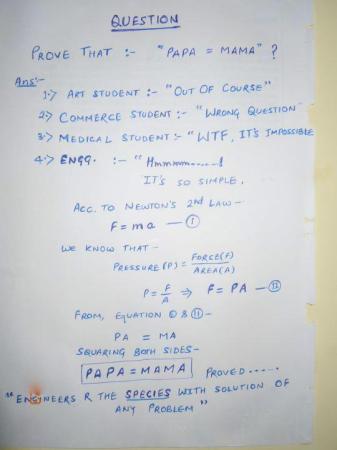 QUESTION
PROVE THAT :- "PAPA = MAMA" ?
Ans:-
1.> ART STUDENT :- "OUT OF COURSE"
2.> COMMERCE STUDENT :- "WRONG QUESTION"
3.> MEDICAL STUDENT :- "WTF, IT'S IMPOSSIBLE
4.> ENGG. :- "Hmmmm.....!
IT'S SO SIMPLE.
ACC. TO NEWTON'S 2nd LAW -
F = ma — I
WE KNOW THAT -
PRESSURE (P) = FORCE(F) / AREA(A)
P = F/A ⇒ F = PA — II
FROM, EQUATION I & II -
PA = MA
SQUARING BOTH SIDES -
PAPA = MAMA PROVED.....
"ENGINEERS R THE SPECIES WITH SOLUTION OF
ANY PROBLEM"